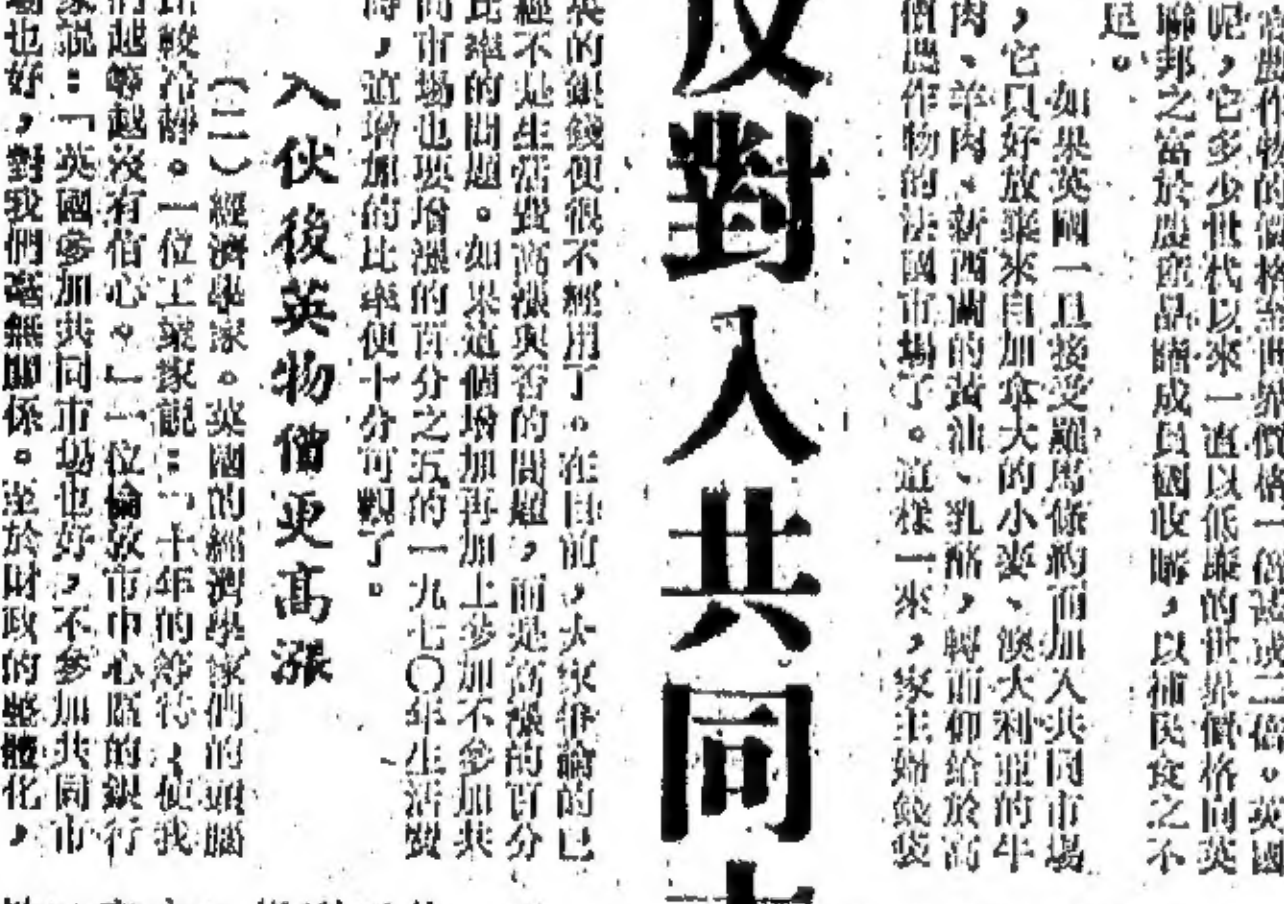 農作物的價格至世界價格一倍或二倍。英國
呢，它多少世代以來一直以低廉的世界價格向英
聯邦之富於農產品諸成員國收購，以補民食之不
足。
如果英國一旦接受羅馬條約而加入共同市場
，它只好放棄來自加拿大的小麥、澳大利亞的牛
肉、羊肉、新西蘭的黃油、乳酪，轉而仰給於高
價農作物的法國市場了。這樣一來，家主婦錢袋
反對入共同
英的銀錢便很不經用了。在目前，大家爭論的已
經不是生活費高漲與否的問題，而是高漲的百分
比率的問題。如果這個增加再加上參加不參加共
同市場也要增漲的百分之五的一九七〇年生活費
時，這增加的比率便十分可觀了。
入伙後英物價更高漲
（二）經濟學家。英國的經濟學家們的頭腦
較冷靜。一位工業家說：「十年的等待，使我
們越等越沒有信心。」一位倫敦市中心區的銀行
家說：「英國參加共同市場也好，不參加共同市
場也好，對我們毫無關係。至於財政的整體化，